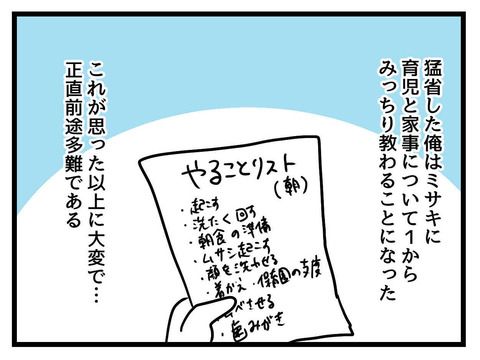 猛省した俺はミサキに
育児と家事について1から
みっちり教わることになった
やることリスト
(朝)
・起こす
・洗たく回す
・朝食の準備
・ムサシ起こす
・顔を洗わせる
・着がえ・保育園の支度
べさせる
・歯みがき
これが思った以上に大変で…
正直前途多難である